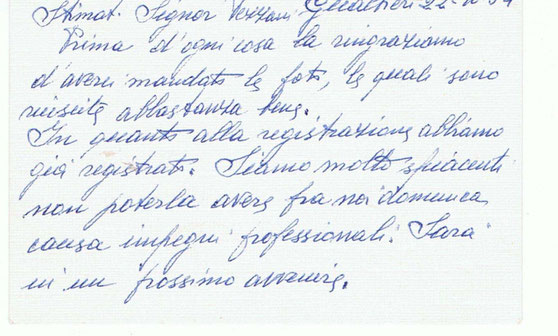 Stimat. Signor Vezzani Gualtieri 22-10-
Prima d'ogni cosa la ringraziamo
d'averci mandato le foto, le quali sono
riuscite abbastanza bene.
In quanto alla registrazione abbiamo
già registrato. Siamo molto spiacenti
non poterla avere fra noi domenica
causa impegni professionali. Sarà
in un prossimo avvenire.